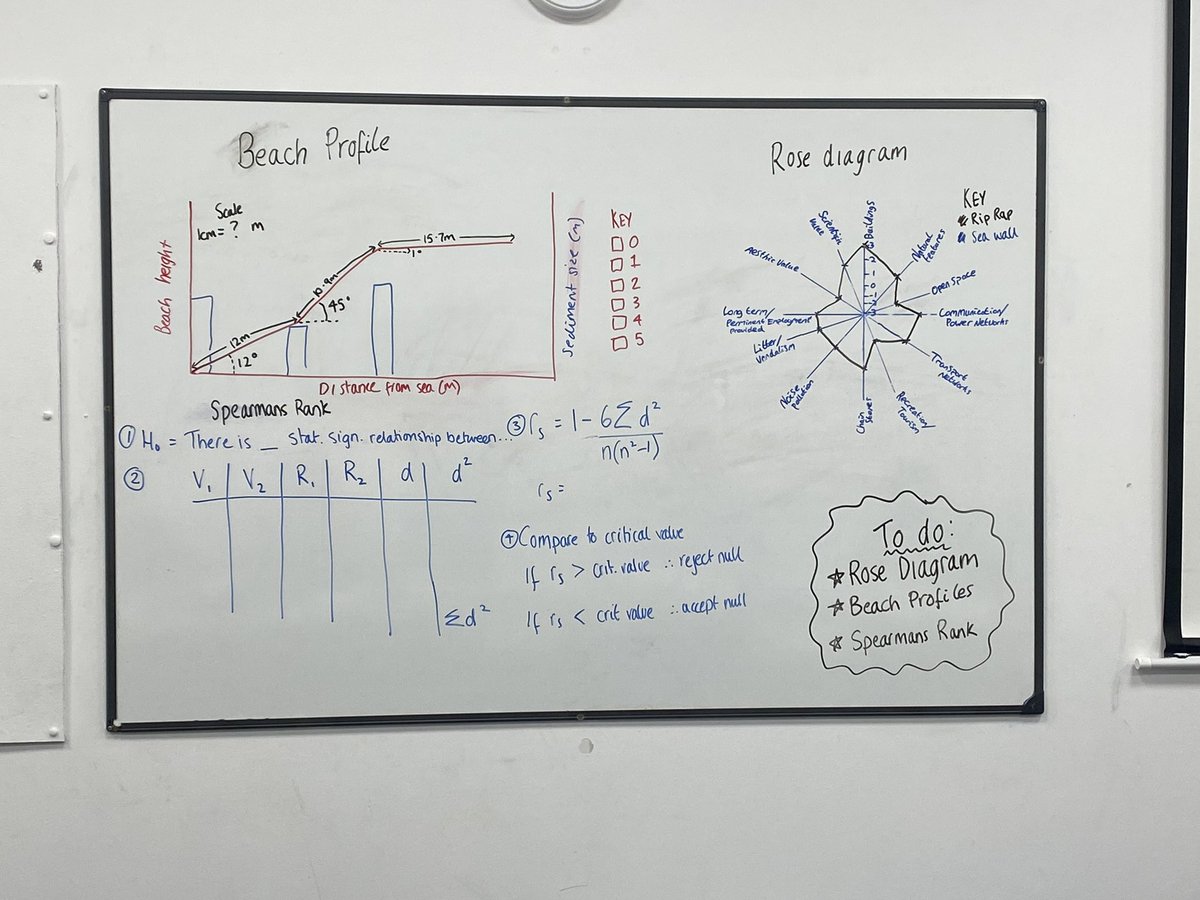 Beach Profile
Scale
1cm = ? m
Beach height
12m
12°
10.9m
45°
15.7m
1°
Distance from sea (m)
Sediment size (m)
KEY
0
1
2
3
4
5
Rose diagram
KEY
Rip Rap
Sea wall
Buildings
Natural
features
Open Space
Communication/
Power Networks
Transport
Networks
Recreation/
Tourism
Chain
Stores
Noise
Pollution
Litter/
Vandalism
Long term/
Perminent Employment
Provided
Aesthic Value
Scientific
Value
Spearmans Rank
① H₀ = There is _ stat. sign. relationship between...
② V₁ V₂ R₁ R₂ d d²
Σd²
③ rₛ = 1 - 6Σd²
n(n²-1)
rₛ =
④ Compare to critical value
If rₛ > crit. value ∴ reject null
If rₛ < crit value ∴ accept null
To do:
☆ Rose Diagram
☆ Beach Profiles
☆ Spearmans Rank